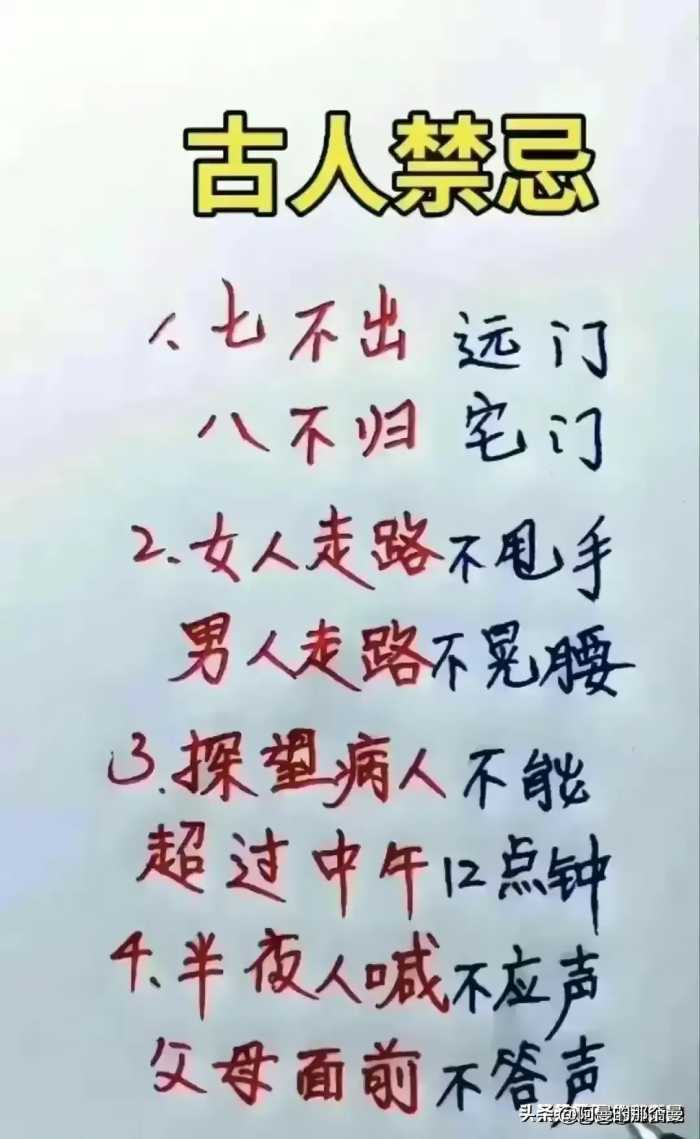 古人禁忌
1、七不出 远门
八不归 宅门
2、女人走路不甩手
男人走路不晃腰
3、探望病人不能
超过中午12点钟
4、半夜人喊不应声
父母面前不答声
头条 @阿曼的那個曼